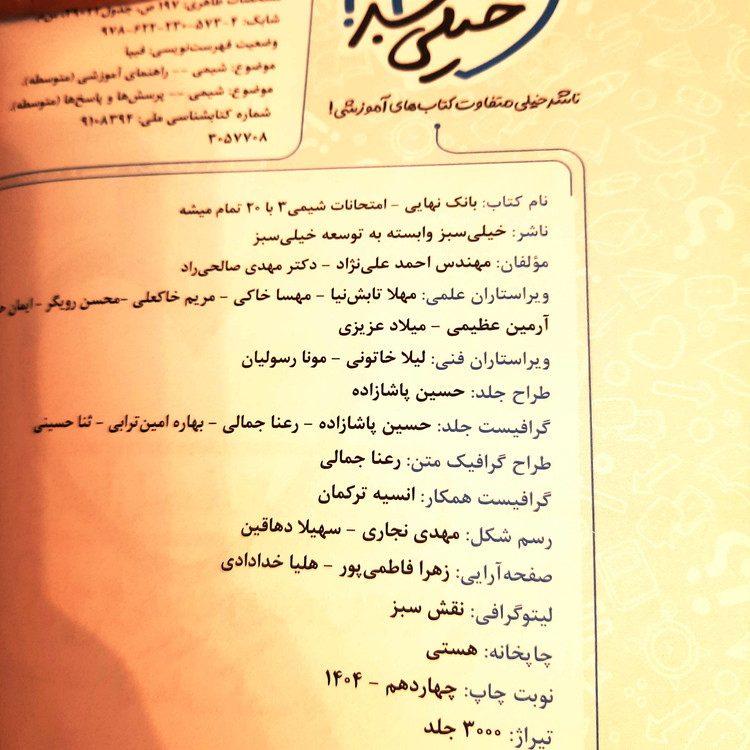 شابک: ۴-۵۷۳-۲۳۰-۶۲۲-۹۷۸
وضعیت فهرست‌نویسی: فیپا
موضوع: شیمی -- راهنمای آموزشی (متوسطه).
موضوع: شیمی -- پرسش‌ها و پاسخ‌ها (متوسطه).
شماره کتابشناسی ملی: ۹۱۰۸۳۹۴
۳۰۵۷۷۰۸
خیلی سبز
ناشر خیلی متفاوت کتاب‌های آموزشی!
نام کتاب: بانک نهایی - امتحانات شیمی۳ با ۲۰ تمام میشه
ناشر: خیلی‌سبز وابسته به توسعه خیلی‌سبز
مؤلفان: مهندس احمد علی‌نژاد - دکتر مهدی صالحی‌راد
ویراستاران علمی: مهلا تابش‌نیا - مهسا خاکی - مریم خاکعلی -محسن رویگر - ایمان
آرمین عظیمی - میلاد عزیزی
ویراستاران فنی: لیلا خاتونی - مونا رسولیان
طراح جلد: حسین پاشازاده
گرافیست جلد: حسین پاشازاده - رعنا جمالی - بهاره امین‌ترابی - ثنا حسینی
طراح گرافیک متن: رعنا جمالی
گرافیست همکار: انسیه ترکمان
رسم شکل: مهدی نجاری - سهیلا دهاقین
صفحه‌آرایی: زهرا فاطمی‌پور - هلیا خدادادی
لیتوگرافی: نقش سبز
چاپخانه: هستی
نوبت چاپ: چهاردهم - ۱۴۰۴
تیراژ: ۳۰۰۰ جلد